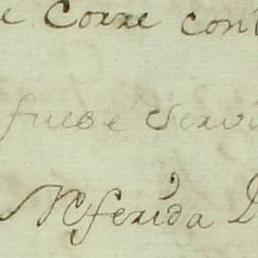 e Corre con
fuese Servi
Referida D